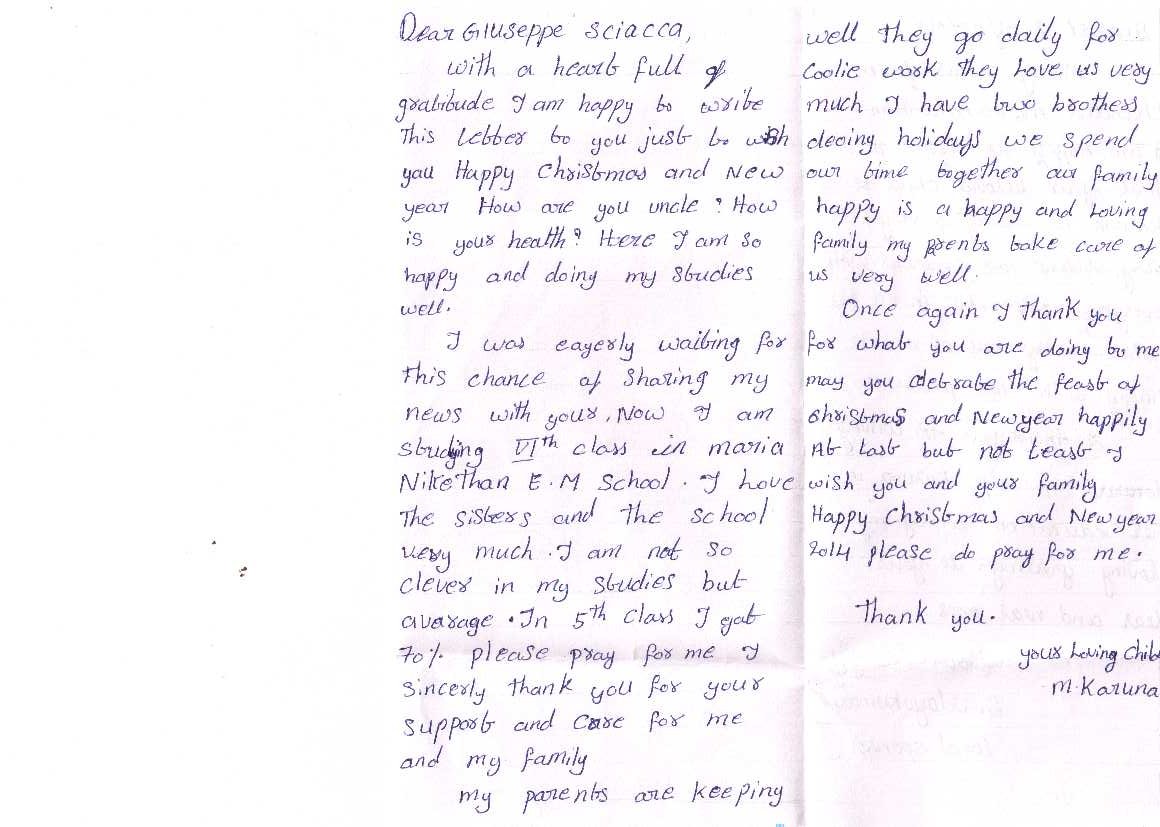 Dear Giuseppe Sciacca,
with a heart full of
gratitude I am happy to write
This Letter to you just to wish
you Happy Christmas and New
year How are you uncle ? How
is your health? Here I am so
happy and doing my studies
well.
I was eagerly waiting for
this chance of sharing my
news with your. Now I am
studying VIth class in maria
Nikethan E.M School. I Love
The sisters and the school
very much. I am not so
clever in my studies but
avarage. In 5th class I got
70% please pray for me I
sincerly thank you for your
support and care for me
and my family
my parents are keeping
well they go daily for
Coolie work they Love us very
much I have two brothers
deoing holidays we spend
our time together our family
happy is a happy and Loving
family my prents take care of
us very well.
Once again I thank you
for what you are doing to me
may you clebrate the feast of
Christmas and Newyear happily
At Last but not Least I
wish you and your family
Happy Christmas and Newyear
2014 please do pray for me.
Thank you.
your Loving Child
M. Karuna